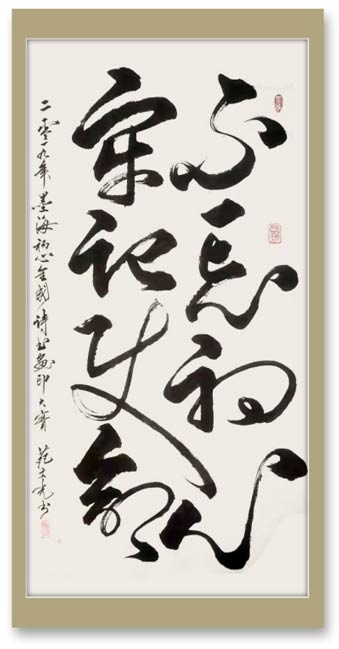 不忘初心
牢记使命
二零一九年墨海初心全国诗书画印大赛 范 书